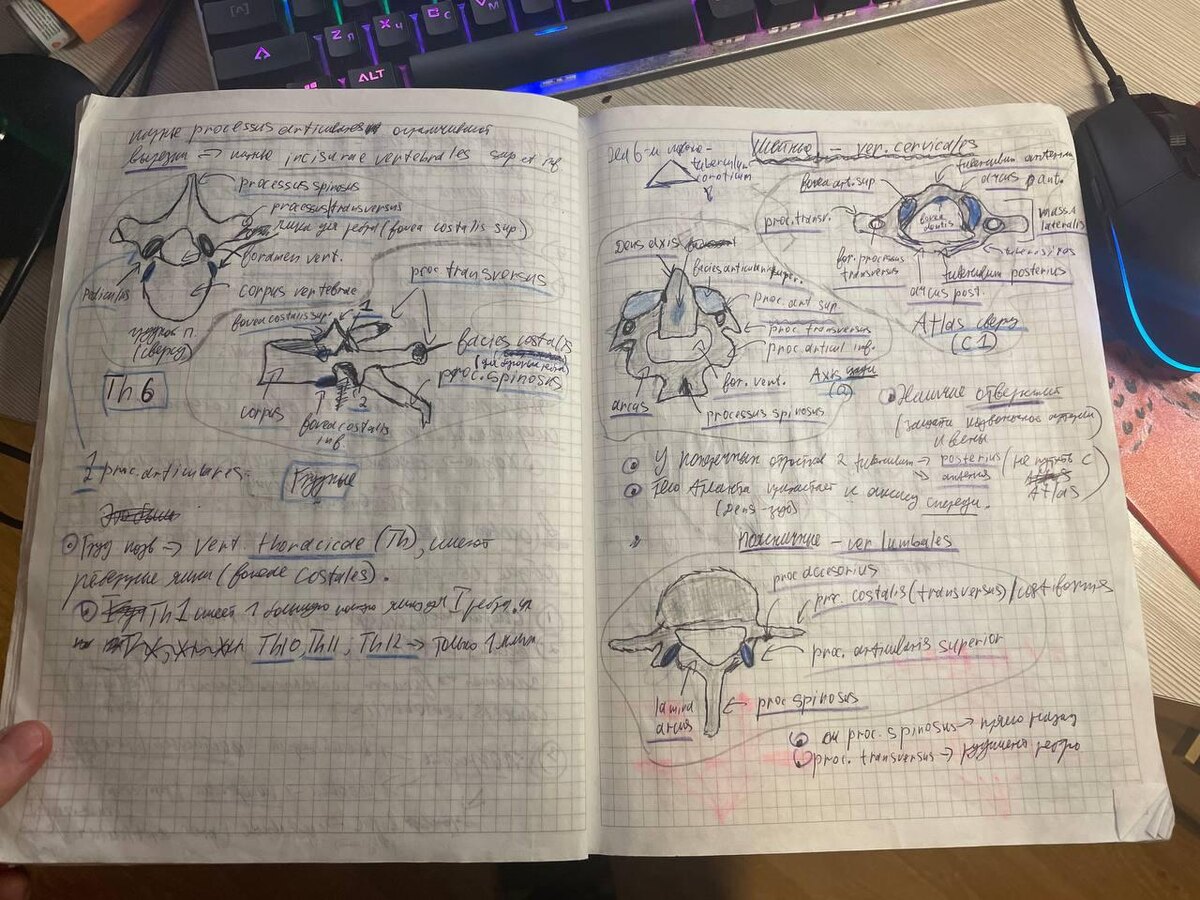 processus articulares ограничивают
вырезки → incisurae vertebrales sup et inf
processus spinosus
processus transversus
ямка для ребра (fovea costalis sup)
foramen vert.
pediculus
corpus vertebrae
proc transversus
грудн п.
(сверху)
Th 6
fovea costalis sup.
1
facies costalis
proc. spinosus
corpus
2
fovea costalis
inf.
1 proc. articulares
Грудные
Груд позв → vert. thoracicae (Th), имеют
реберные ямки (foveae costales).
Th 1 имеет 1 I ребра
Th10, Th11, Th12 → только 1 ямку
Шейные – ver. cervicales
для 6-й
tuberculum
caroticum
fovea art. sup
tuberculum anterius
arcus ant.
proc. transv.
fovea
dentis
massa
lateralis
for. processus
transversus
tuberculum posterius
arcus post.
Atlas сверху
(C1)
dens axis
facies articularis
proc. art sup.
proc. transversus
proc articul inf.
for. vert.
Axis
arcus
processus spinosus
Наличие отверстий
(защита позвоночной артерии)
и вены
У поперечных отростков 2 tuberculum → posterius
anterius
Atlas
Тело Атланта прирастает к аксису спереди.
(dens зуб)
Поясничные – ver lumbales
proc accesorius
proc. costalis (transversus) / costiformis
proc. articularis superior
lamina
arcus
proc spinosus
proc. spinosus → прямо назад
proc. transversus → рудимент ребро
Z
Я
X
Ч
C
С
V
М
ALT